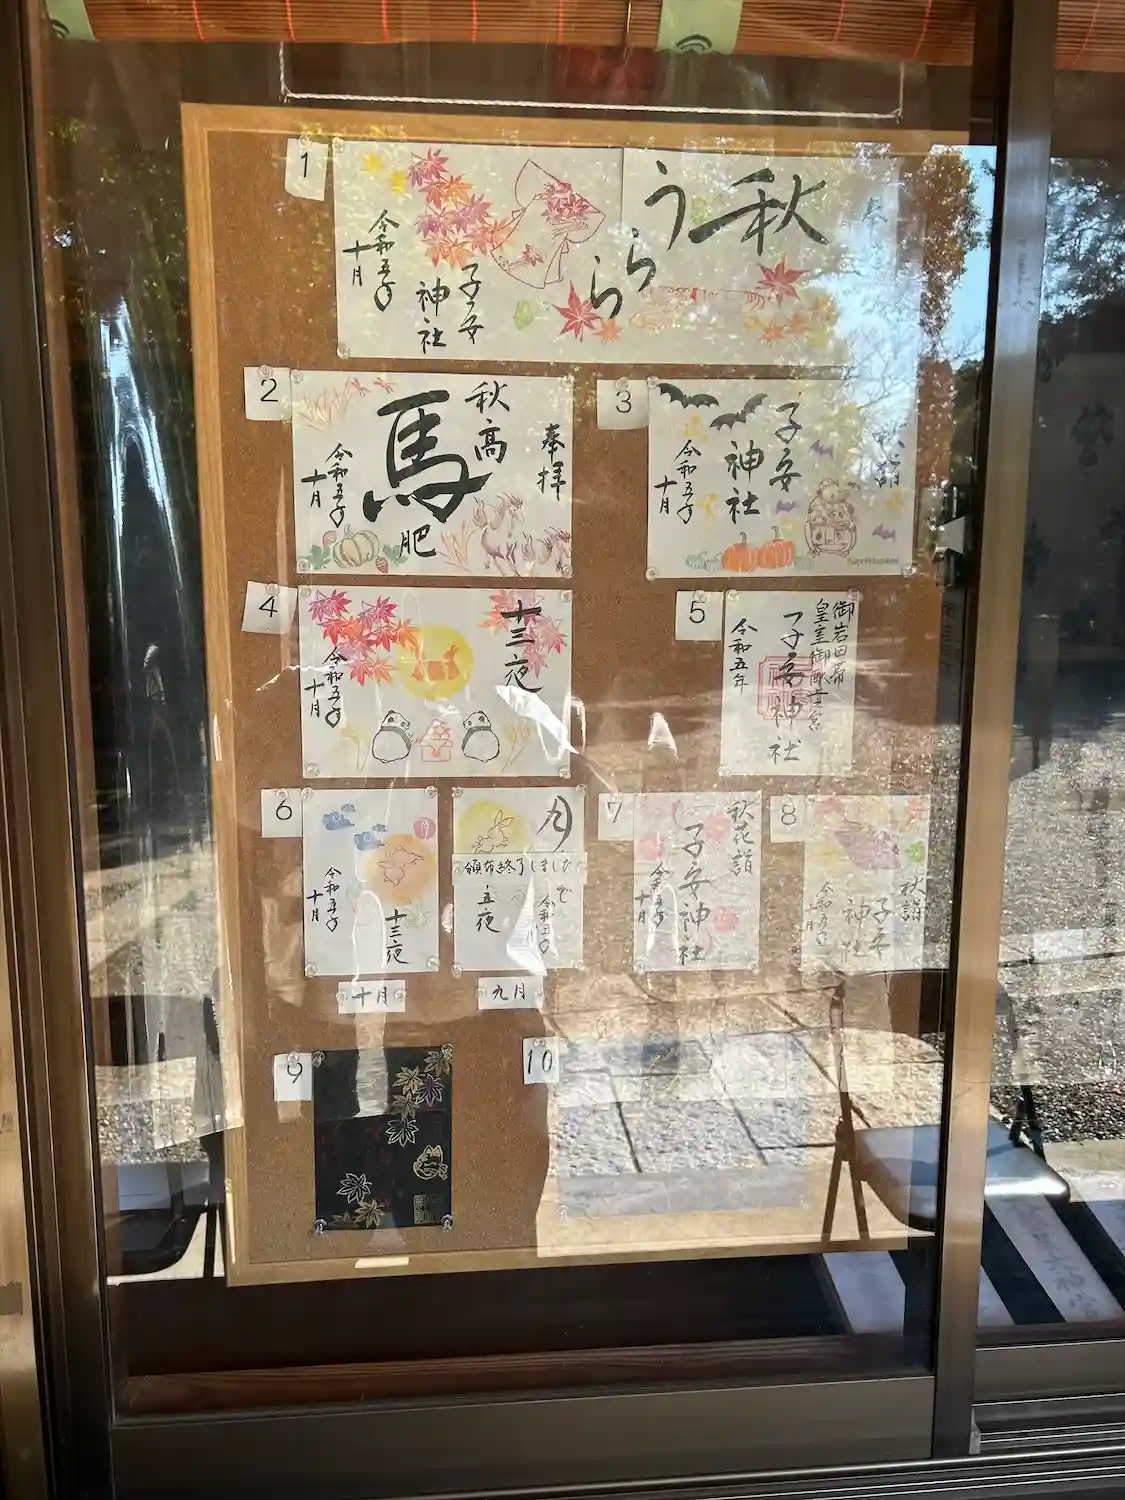 1
秋うらら
子安
神社
令和五年
十月
2
奉拝
秋高
馬
肥
令和五年
十月
3
秋詣
子安
神社
令和五年
十月
4
十三夜
令和五年
十月
5
御岩田帯
皇室御献上宮
子安神社
令和五年
6
月
十三夜
令和五年
十月
十月
頒布終了しました
五夜
令和五年
九月
7
秋花詣
子安神社
令和五年
十月
8
秋詣
子安
神社
令和五年
十月
9
10